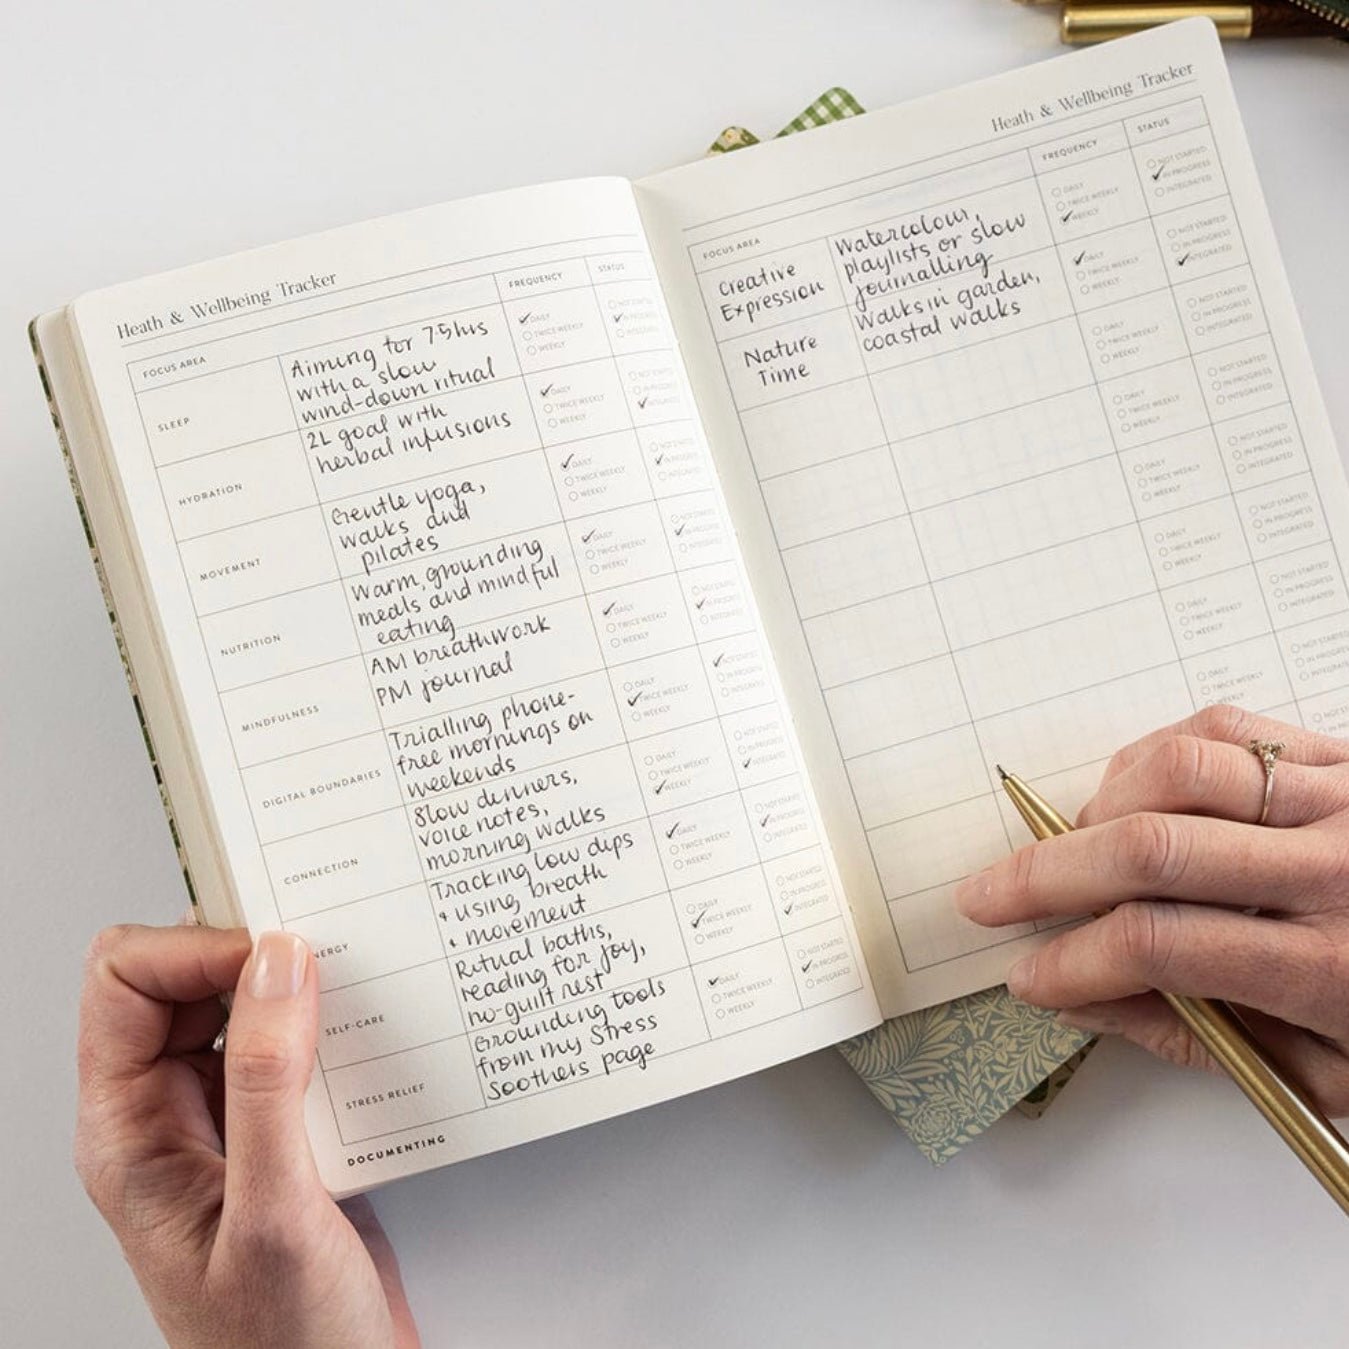 Heath & Wellbeing Tracker
FOCUS AREA
FREQUENCY
STATUS
SLEEP
Aiming for 7.5hrs
with a slow
wind-down ritual
DAILY
TWICE WEEKLY
WEEKLY
NOT STARTED
IN PROGRESS
INTEGRATED
HYDRATION
2L goal with
herbal infusions
DAILY
TWICE WEEKLY
WEEKLY
NOT STARTED
IN PROGRESS
INTEGRATED
MOVEMENT
Gentle yoga,
walks and
pilates
DAILY
TWICE WEEKLY
WEEKLY
NOT STARTED
IN PROGRESS
INTEGRATED
NUTRITION
Warm, grounding
meals and mindful
eating
DAILY
TWICE WEEKLY
WEEKLY
NOT STARTED
IN PROGRESS
INTEGRATED
MINDFULNESS
AM breathwork
PM journal
DAILY
TWICE WEEKLY
WEEKLY
NOT STARTED
IN PROGRESS
INTEGRATED
DIGITAL BOUNDARIES
Trialling phone-
free mornings on
weekends
DAILY
TWICE WEEKLY
WEEKLY
NOT STARTED
IN PROGRESS
INTEGRATED
CONNECTION
Slow dinners,
voice notes,
morning walks
DAILY
TWICE WEEKLY
WEEKLY
NOT STARTED
IN PROGRESS
INTEGRATED
NERGY
Tracking low dips
+ using breath
+ movement
DAILY
TWICE WEEKLY
WEEKLY
NOT STARTED
IN PROGRESS
INTEGRATED
SELF-CARE
Ritual baths,
reading for joy,
no-guilt rest
DAILY
TWICE WEEKLY
WEEKLY
NOT STARTED
IN PROGRESS
INTEGRATED
STRESS RELIEF
Grounding tools
from my Stress
Soothers page
DAILY
TWICE WEEKLY
WEEKLY
NOT STARTED
IN PROGRESS
INTEGRATED
DOCUMENTING
Heath & Wellbeing Tracker
FOCUS AREA
FREQUENCY
STATUS
Creative
Expression
Watercolour,
playlists or slow
journalling
DAILY
TWICE WEEKLY
WEEKLY
NOT STARTED
IN PROGRESS
INTEGRATED
Nature
Time
Walks in garden,
coastal walks
DAILY
TWICE WEEKLY
WEEKLY
NOT STARTED
IN PROGRESS
INTEGRATED
DAILY
TWICE WEEKLY
WEEKLY
NOT STARTED
IN PROGRESS
INTEGRATED
DAILY
TWICE WEEKLY
WEEKLY
NOT STARTED
IN PROGRESS
INTEGRATED
DAILY
TWICE WEEKLY
WEEKLY
NOT STARTED
IN PROGRESS
INTEGRATED
DAILY
TWICE WEEKLY
WEEKLY
NOT STARTED
IN PROGRESS
INTEGRATED
DAILY
TWICE WEEKLY
WEEKLY
NOT STARTED
IN PROGRESS
INTEGRATED
DAILY
TWICE WEEKLY
WEEKLY
NOT STARTED